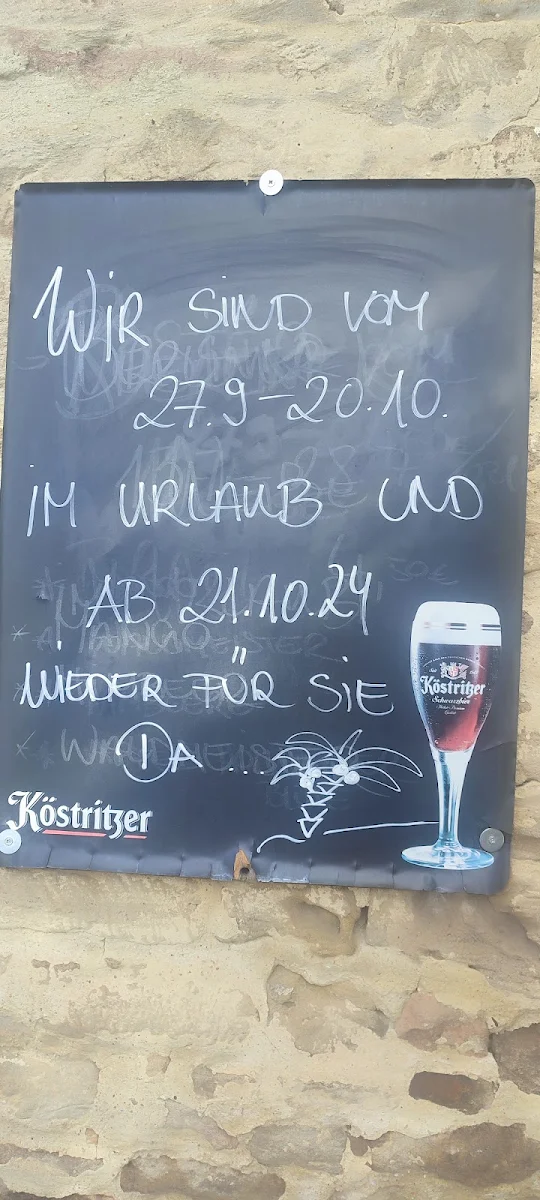 WIR SIND VOM
27.9-20.10.
IM URLAUB UND
AB 21.10.24
WIEDER FÜR SIE
DA ...
Köstritzer
Köstritzer
Schwarzbier